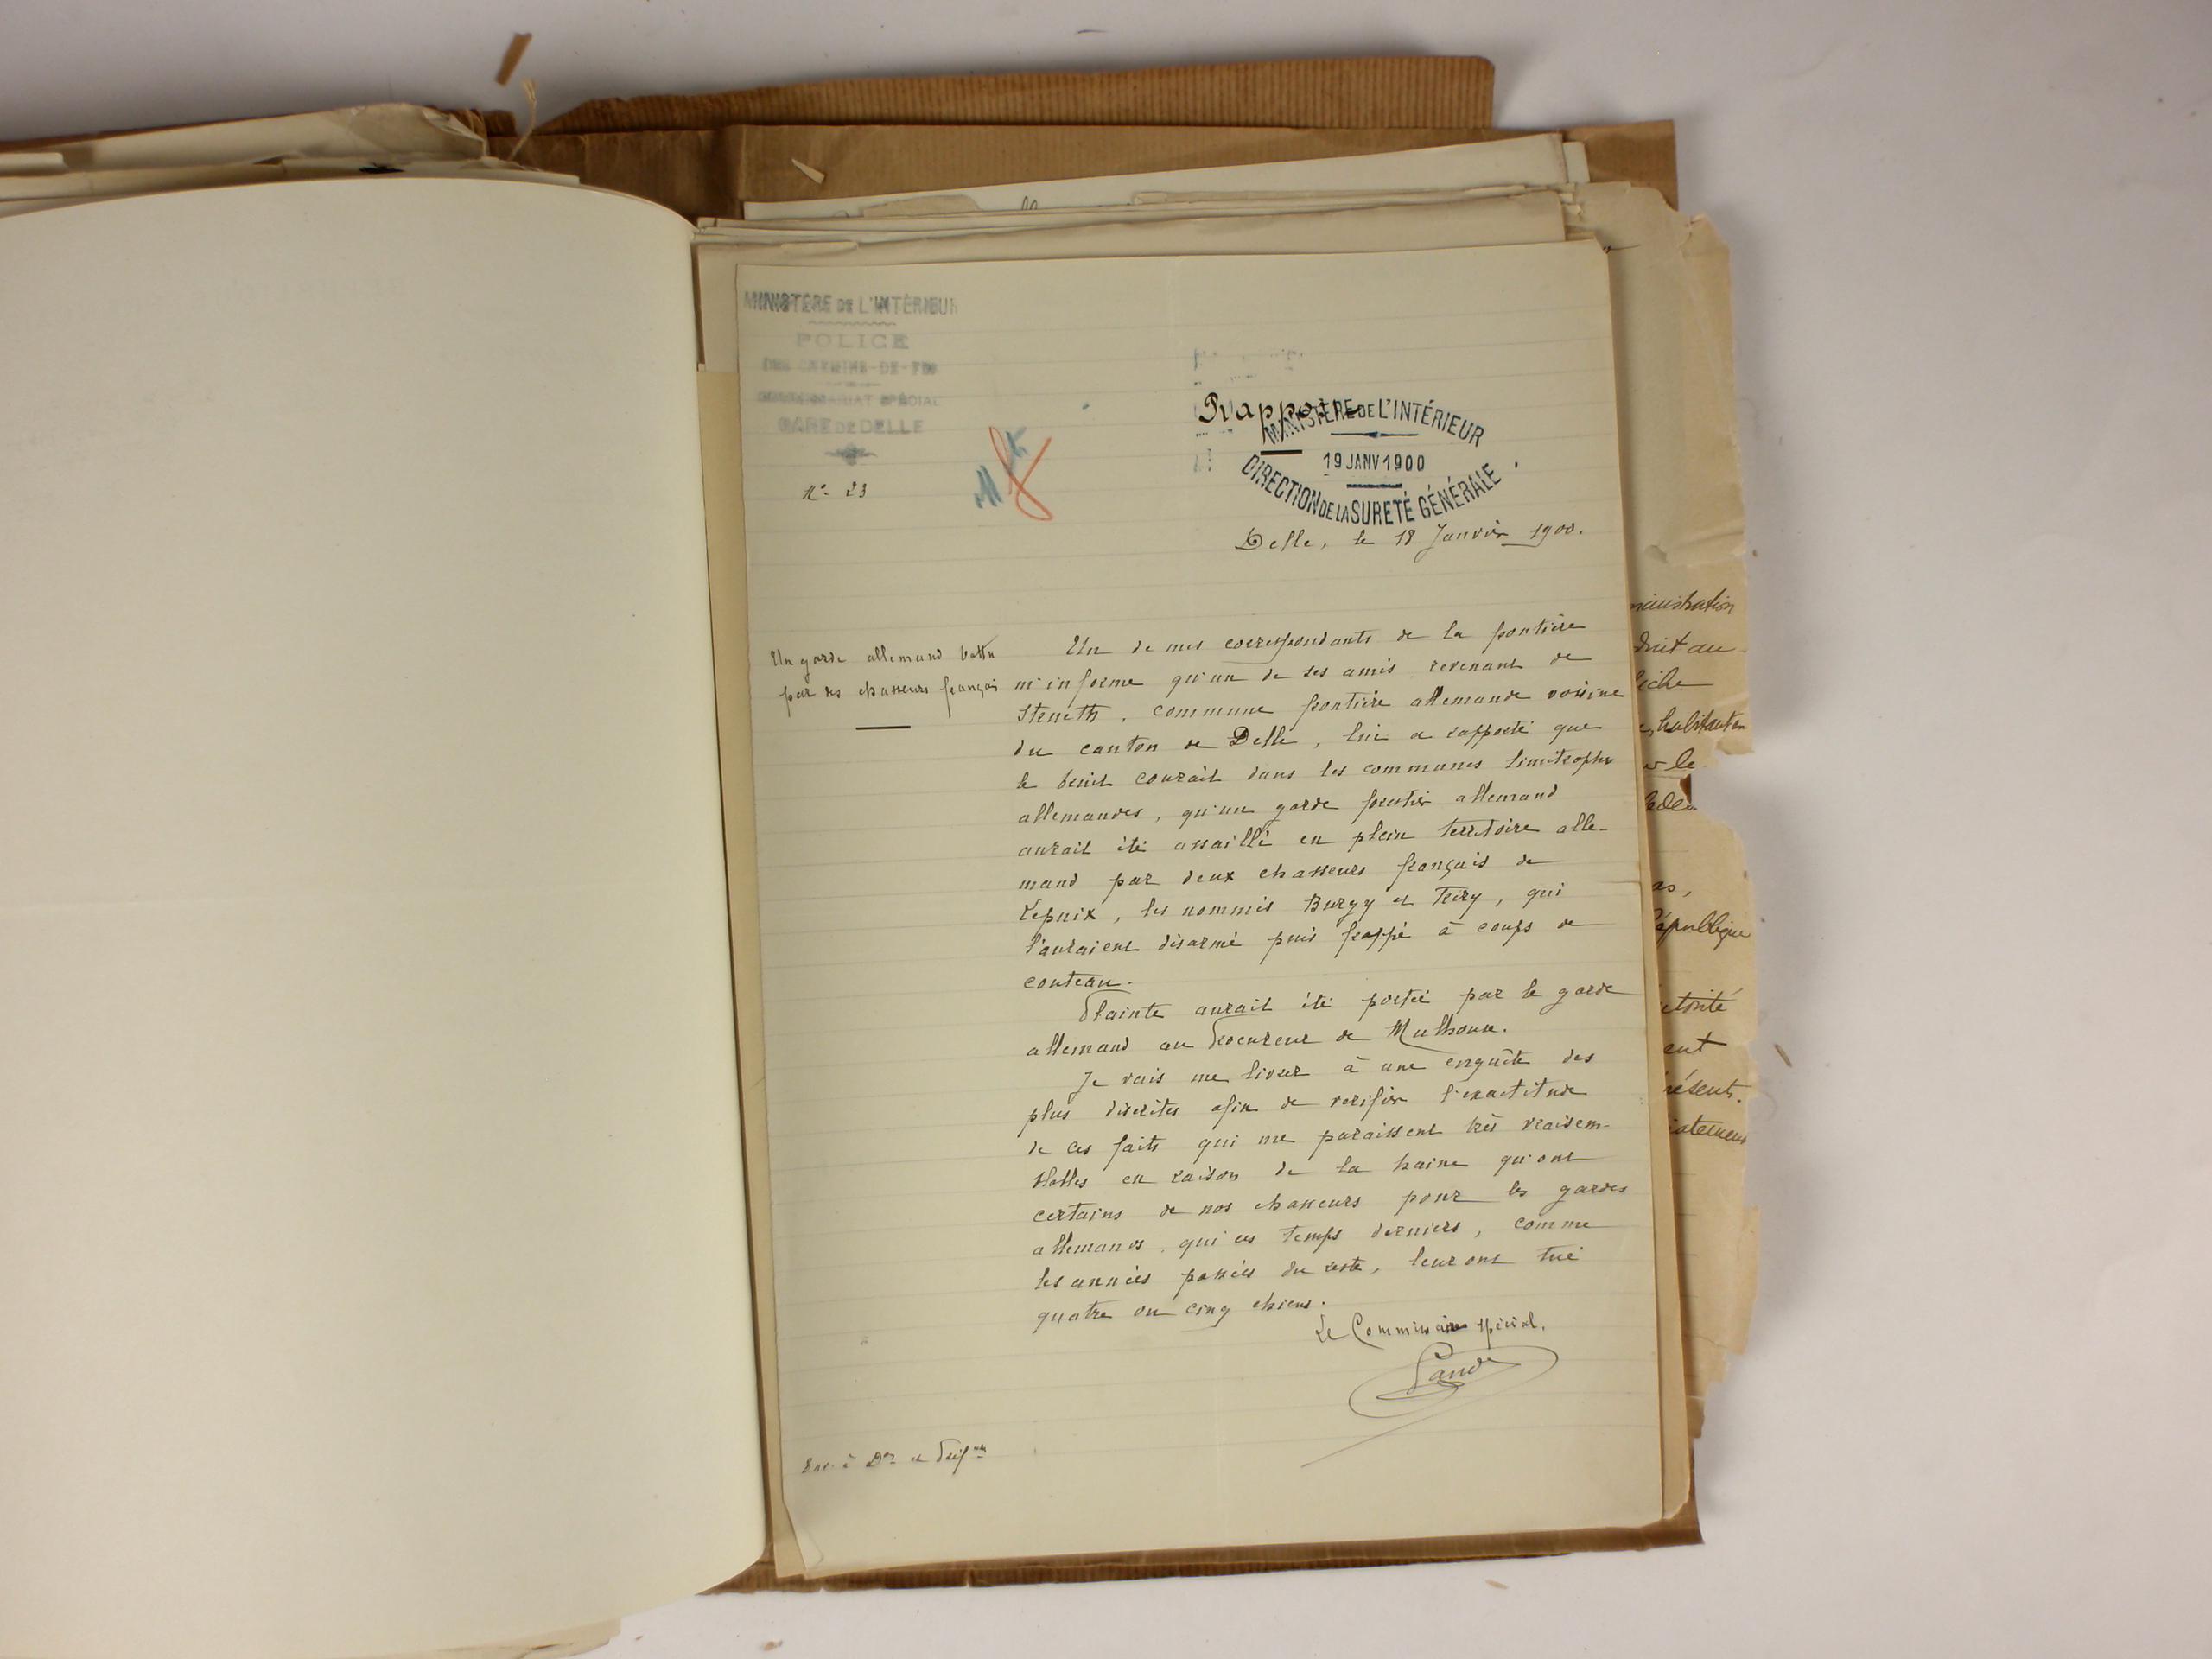 MINISTÈRE DE L'INTÉRIEUR
POLICE
DES CHEMINS-DE-FER
COMMISSARIAT SPÉCIAL
GARE DE DELLE
N° 23
Rapport
MINISTÈRE DE L'INTÉRIEUR
19 JANV 1900
DIRECTION DE LA SURETÉ GÉNÉRALE
Delle, le 18 Janvier 1900.
Un garde allemand battu
par des chasseurs français
Un de mes correspondants de la frontière
m'informe qu'un de ses amis revenant de
commune frontière allemande voisine
du canton de Delle, lui a rapporté que
le bruit courait dans les communes limitrophes
allemandes, qu'un garde forestier allemand
aurait été assailli en plein territoire alle-
mand par deux chasseurs français de
Lepuix, les nommés Burgy et Fréry, qui
l'auraient désarmé puis frappé à coups de
couteau.
Plainte aurait été portée par le garde
allemand au Procureur de Mulhouse.
Je vais me livrer à une enquête des
plus discrètes afin de verifier l'exactitude
de ces faits qui me paraissent très vraisem-
blables en raison de la haine qu'ont
certains de nos chasseurs pour les gardes
allemands qui ces temps derniers, comme
les années passées du reste, leur ont tué
quatre ou cinq chiens.
Le Commissaire spécial.
ministration
droit au
habitant
le
République
ent
résent.